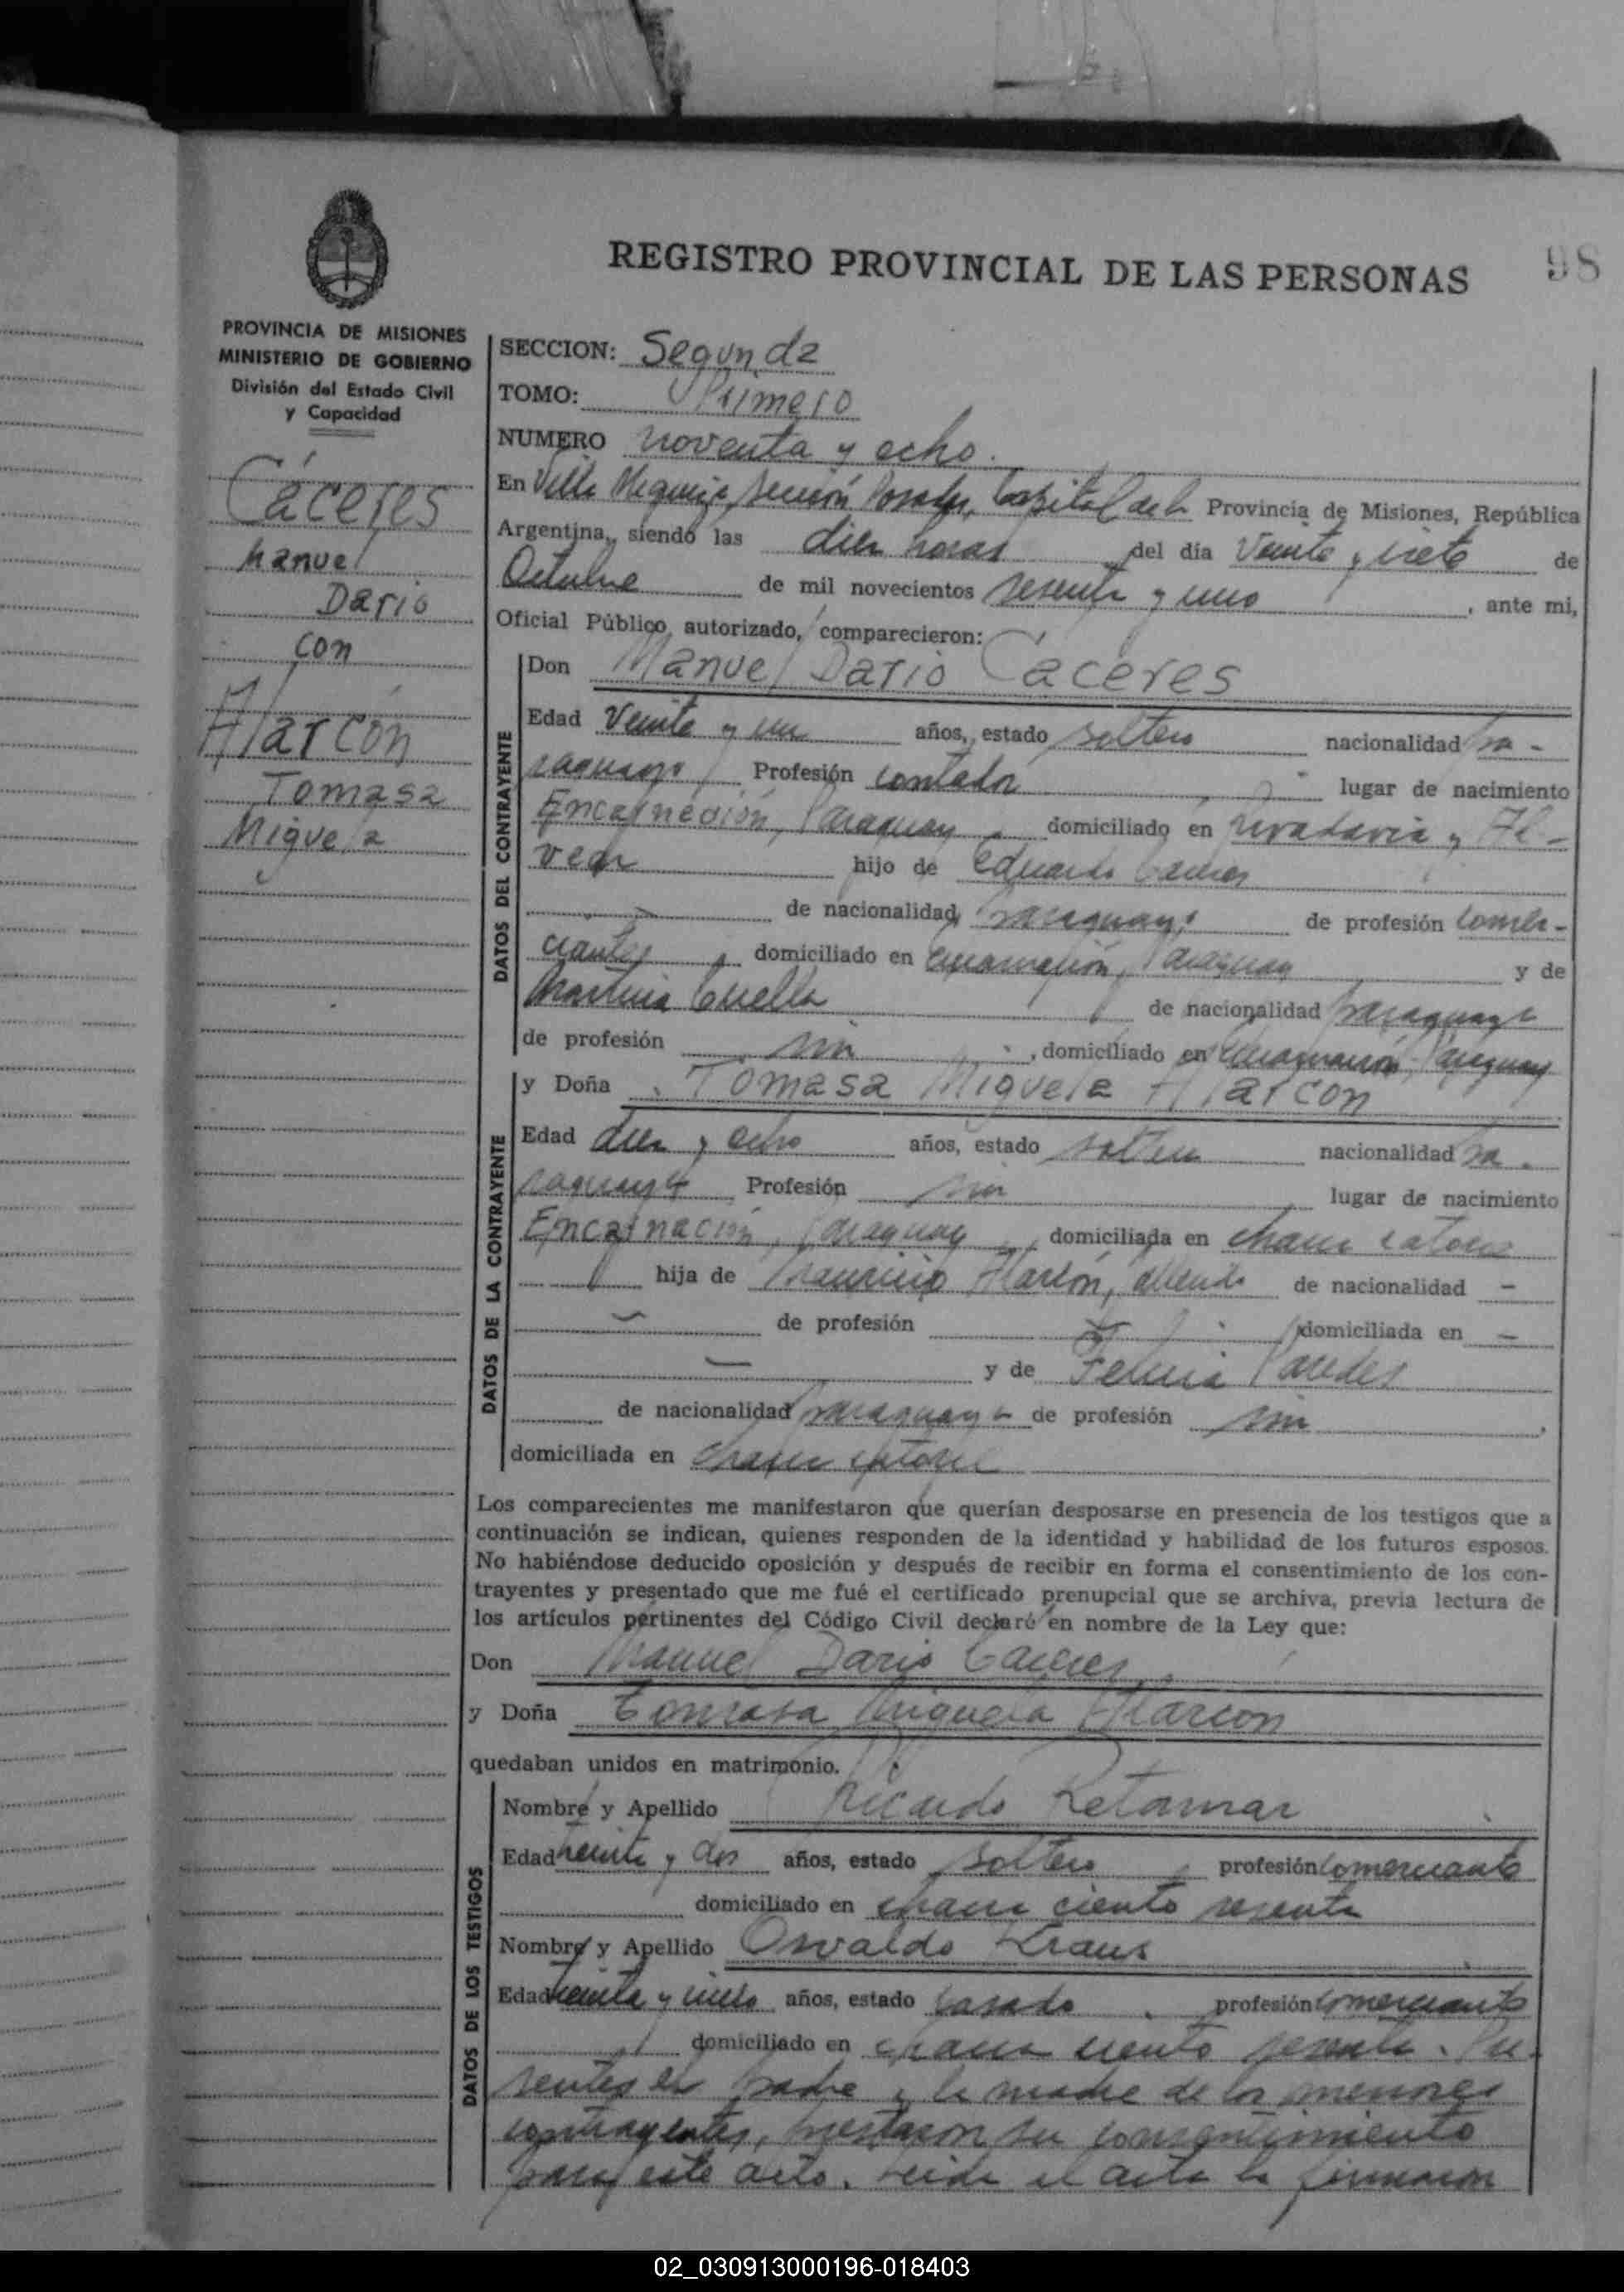 REGISTRO PROVINCIAL DE LAS PERSONAS
98
PROVINCIA DE MISIONES
MINISTERIO DE GOBIERNO
División del Estado Civil
y Capacidad
Cáceres
Manuel
Dario
con
Alarcón
Tomasa
Miguela
SECCION: Segunda
TOMO: Primero
NUMERO noventa y ocho.
En Villa Urquiza, sección Posadas, Capital de la Provincia de Misiones, República
Argentina, siendo las diez horas del día Veinte y siete de
Octubre de mil novecientos sesenta y uno, ante mi,
Oficial Público autorizado, comparecieron:
DATOS DEL CONTRAYENTE
Don Manuel Dario Cáceres
Edad Veinte y un años, estado soltero nacionalidad pa-
raguayo Profesión contador lugar de nacimiento
Encarnación, Paraguay, domiciliado en Rivadavia y Al-
vear hijo de Eduardo Cáceres
de nacionalidad paraguaya de profesión comer-
ciante, domiciliado en Encarnación, Paraguay y de
Martina de nacionalidad paraguaya
de profesión sin, domiciliado en Encarnación, Paraguay
DATOS DE LA CONTRAYENTE
y Doña Tomasa Miguela Alarcon
Edad diez y ocho años, estado soltera nacionalidad pa-
raguaya Profesión sin lugar de nacimiento
Encarnación, Paraguay, domiciliada en chacra catorce
hija de Mauricio Alarcón, de nacionalidad -
- de profesión - domiciliada en -
- y de Felicia Paredes
de nacionalidad paraguaya de profesión sin,
domiciliada en chacra catorce
Los comparecientes me manifestaron que querían desposarse en presencia de los testigos que a
continuación se indican, quienes responden de la identidad y habilidad de los futuros esposos.
No habiéndose deducido oposición y después de recibir en forma el consentimiento de los con-
trayentes y presentado que me fué el certificado prenupcial que se archiva, previa lectura de
los artículos pertinentes del Código Civil declaré en nombre de la Ley que:
Don Manuel Dario Cáceres
y Doña Tomasa Miguela Alarcon
quedaban unidos en matrimonio.
DATOS DE LOS TESTIGOS
Nombre y Apellido Ricardo Retamar
Edad treinta y dos años, estado soltero, profesión comerciante
domiciliado en chacra ciento sesenta
Nombre y Apellido Osvaldo Kraus
Edad treinta y años, estado casado, profesión comerciante
domiciliado en chacra ciento sesenta. Pre-
sentes el padre y la madre de los menores
contrayentes, prestaron su consentimiento
para este acto. Leida el acta la firmaron
02_030913000196-018403